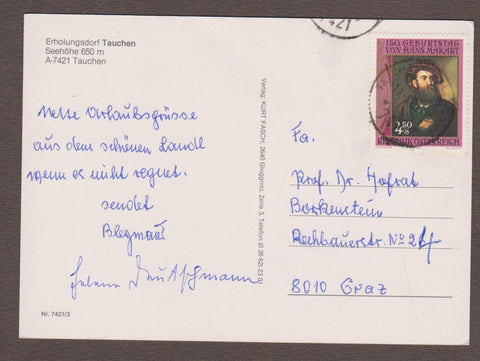 Erholungsdorf Tauchen
Seehöhe 650 m
A-7421 Tauchen
Nette Urlaubsgrüsse
aus dem schönen Landl
wenn es nicht regnet.
sendet
Deutschmann
Nr. 7421/3
Verlag: KURT FASCH, 2640 Gloggnitz, Zeile 3, Telefon (0 26 62) 23 01
7421
150. GEBURTSTAG
VON HANS MAKART
4 2.50 S
REPUBLIK ÖSTERREICH
Fa.
Prof. Dr. Hofrat
Borkenstein
Rechbauerstr. No
8010 Graz